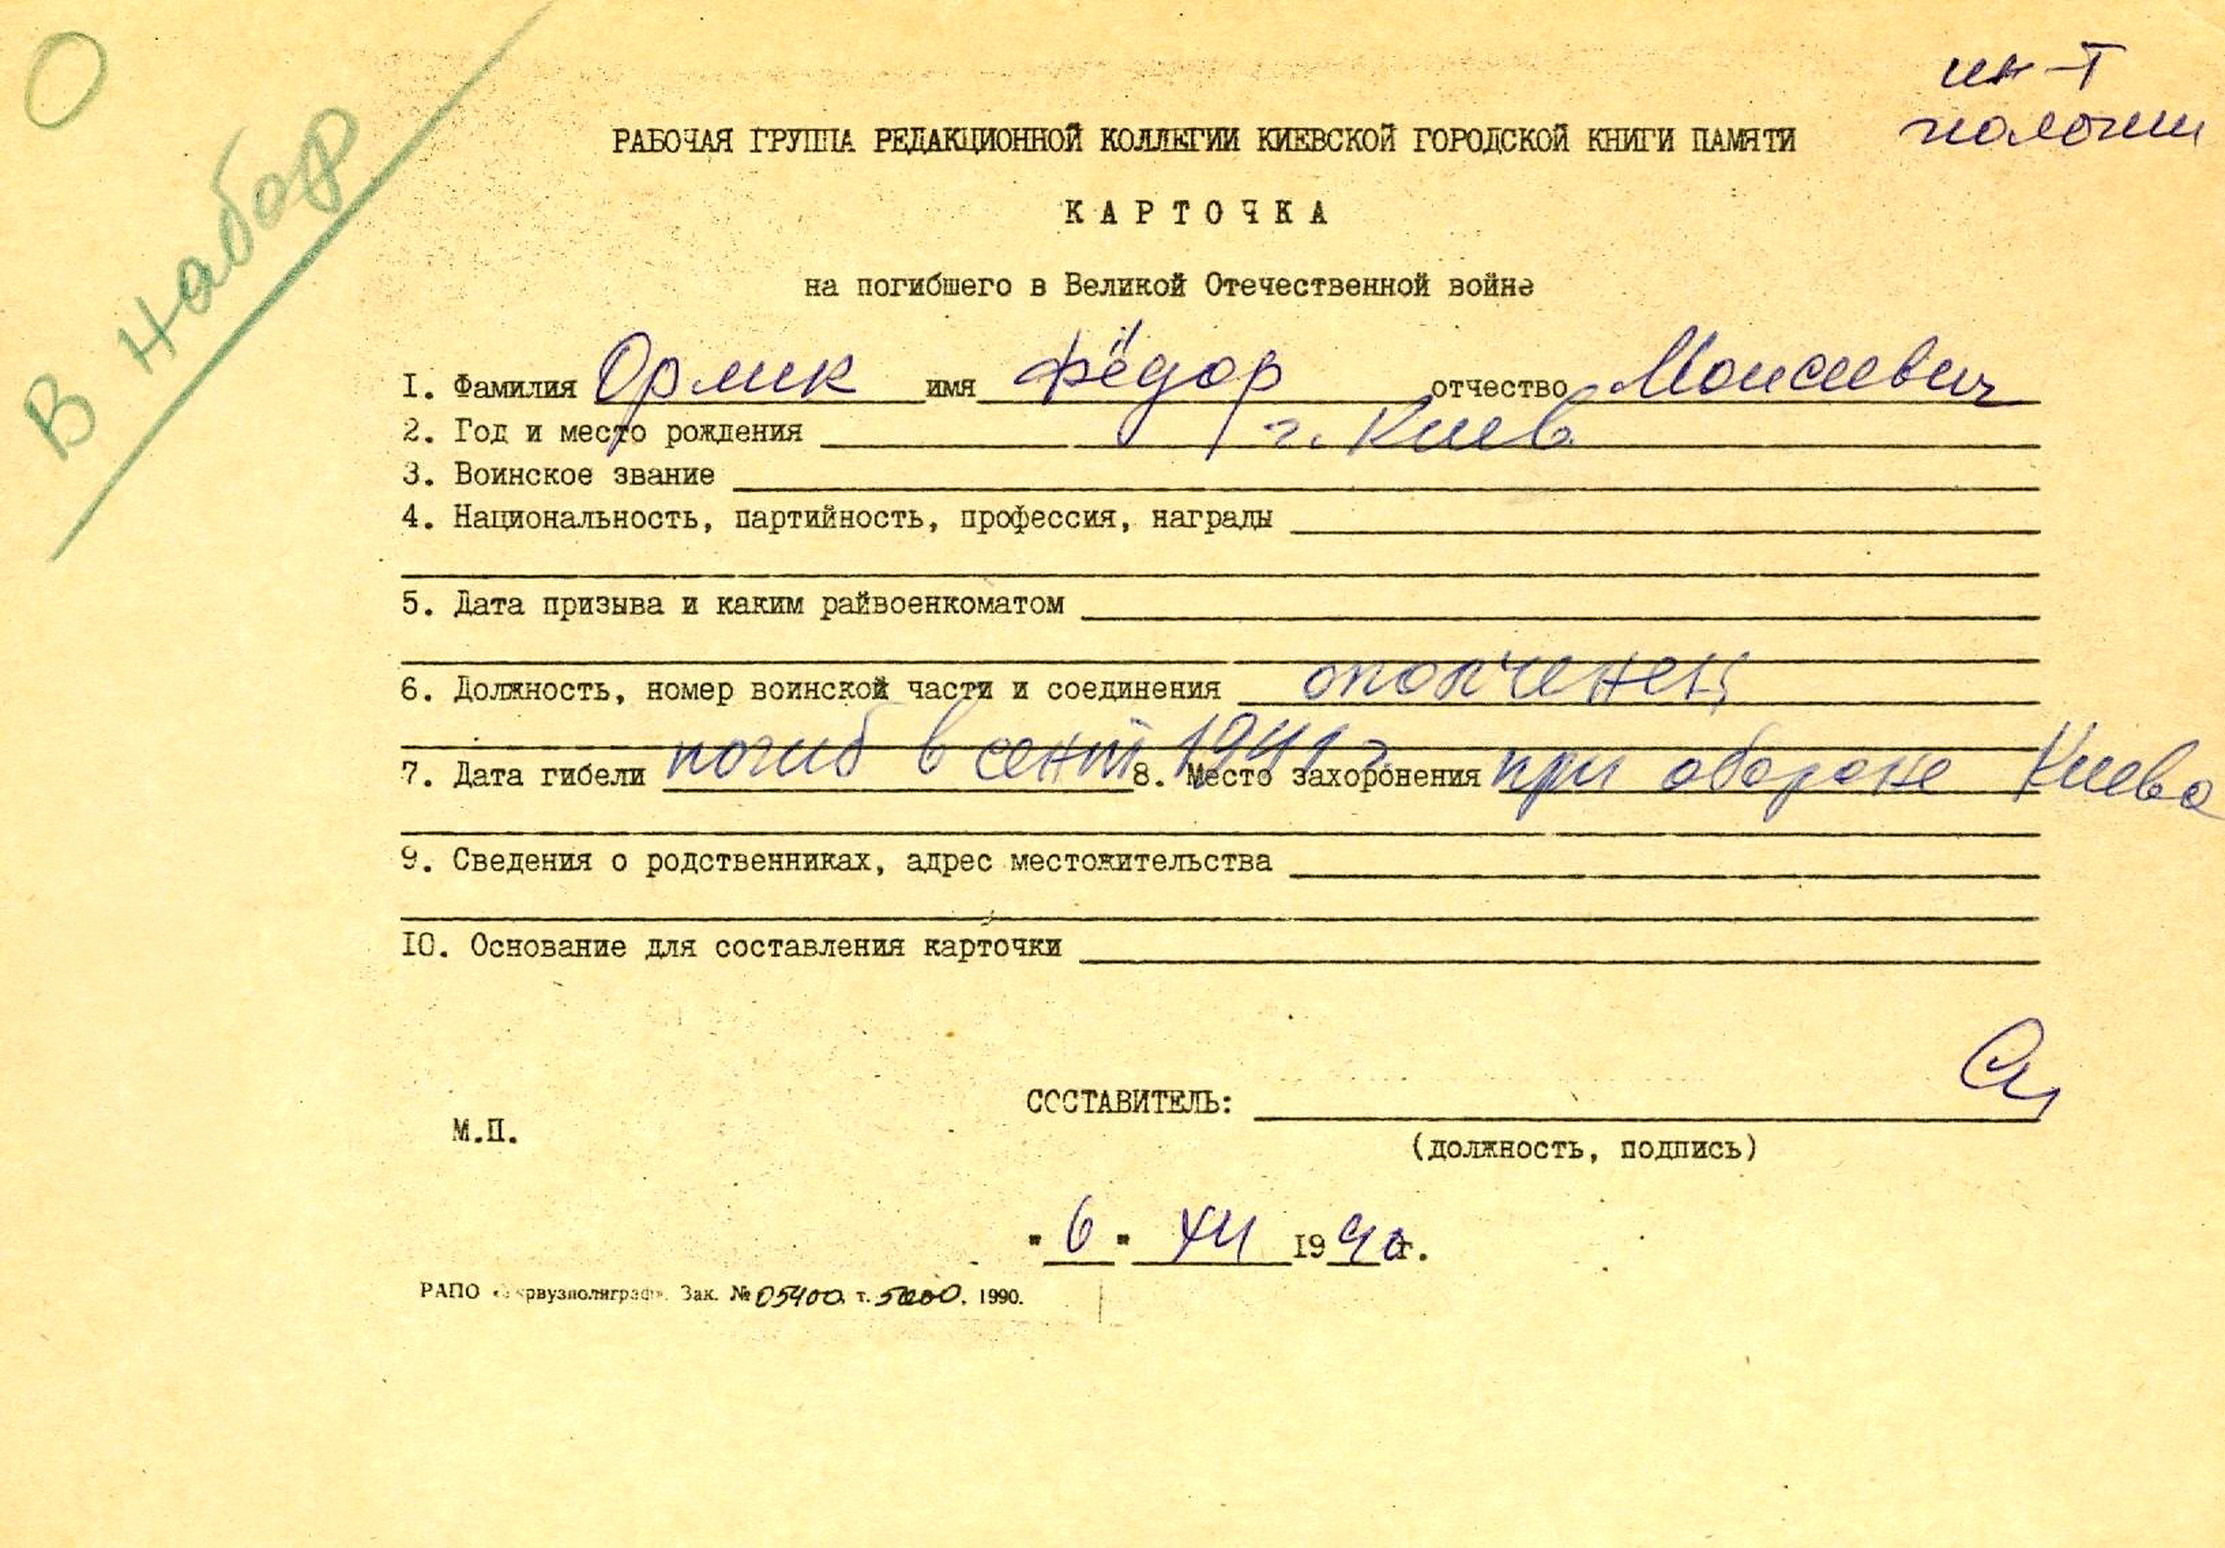 О
В набор
ин-т
РАБОЧАЯ ГРУППА РЕДАКЦИОННОЙ КОЛЛЕГИИ КИЕВСКОЙ ГОРОДСКОЙ КНИГИ ПАМЯТИ
КАРТОЧКА
на погибшего в Великой Отечественной войне
I. Фамилия Ормик имя Фёдор отчество Моисеевич
2. Год и место рождения г. Киев
3. Воинское звание
4. Национальность, партийность, профессия, награды
5. Дата призыва и каким райвоенкоматом
6. Должность, номер воинской части и соединения ополченец
7. Дата гибели погиб в сент 1941 г. 8. Место захоронения при обороне Киева
9. Сведения о родственниках, адрес местожительства
IO. Основание для составления карточки
СОСТАВИТЕЛЬ:
М.П.
(должность, подпись)
"6" XII 1990г.
РАПО «Укрвузполиграф». Зак. № 05400 т. 5000. 1990.